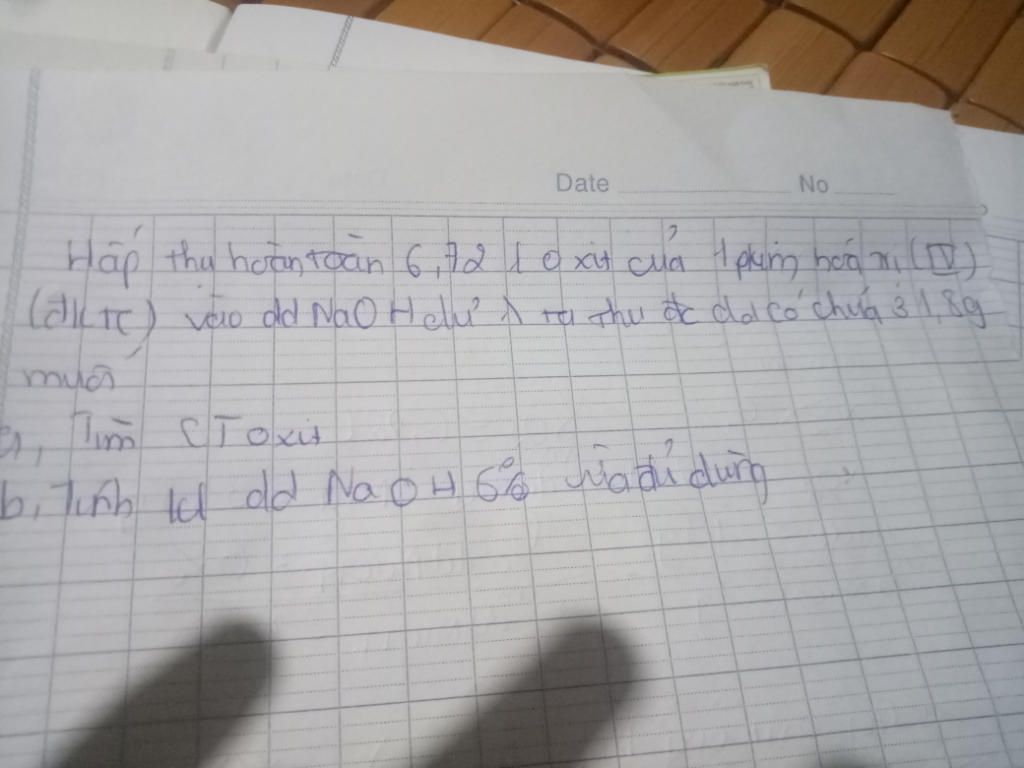 Date No
Hấp thụ hoàn toàn 6,72 l oxit của 1 phim hoá trị (IV)
(đktc) vào dd NaOH đủ → ta thu đc dd có chứa 31,8g
muối
a, Tìm CT oxit
b, Tính kl dd NaOH 6% vừa đủ dùng